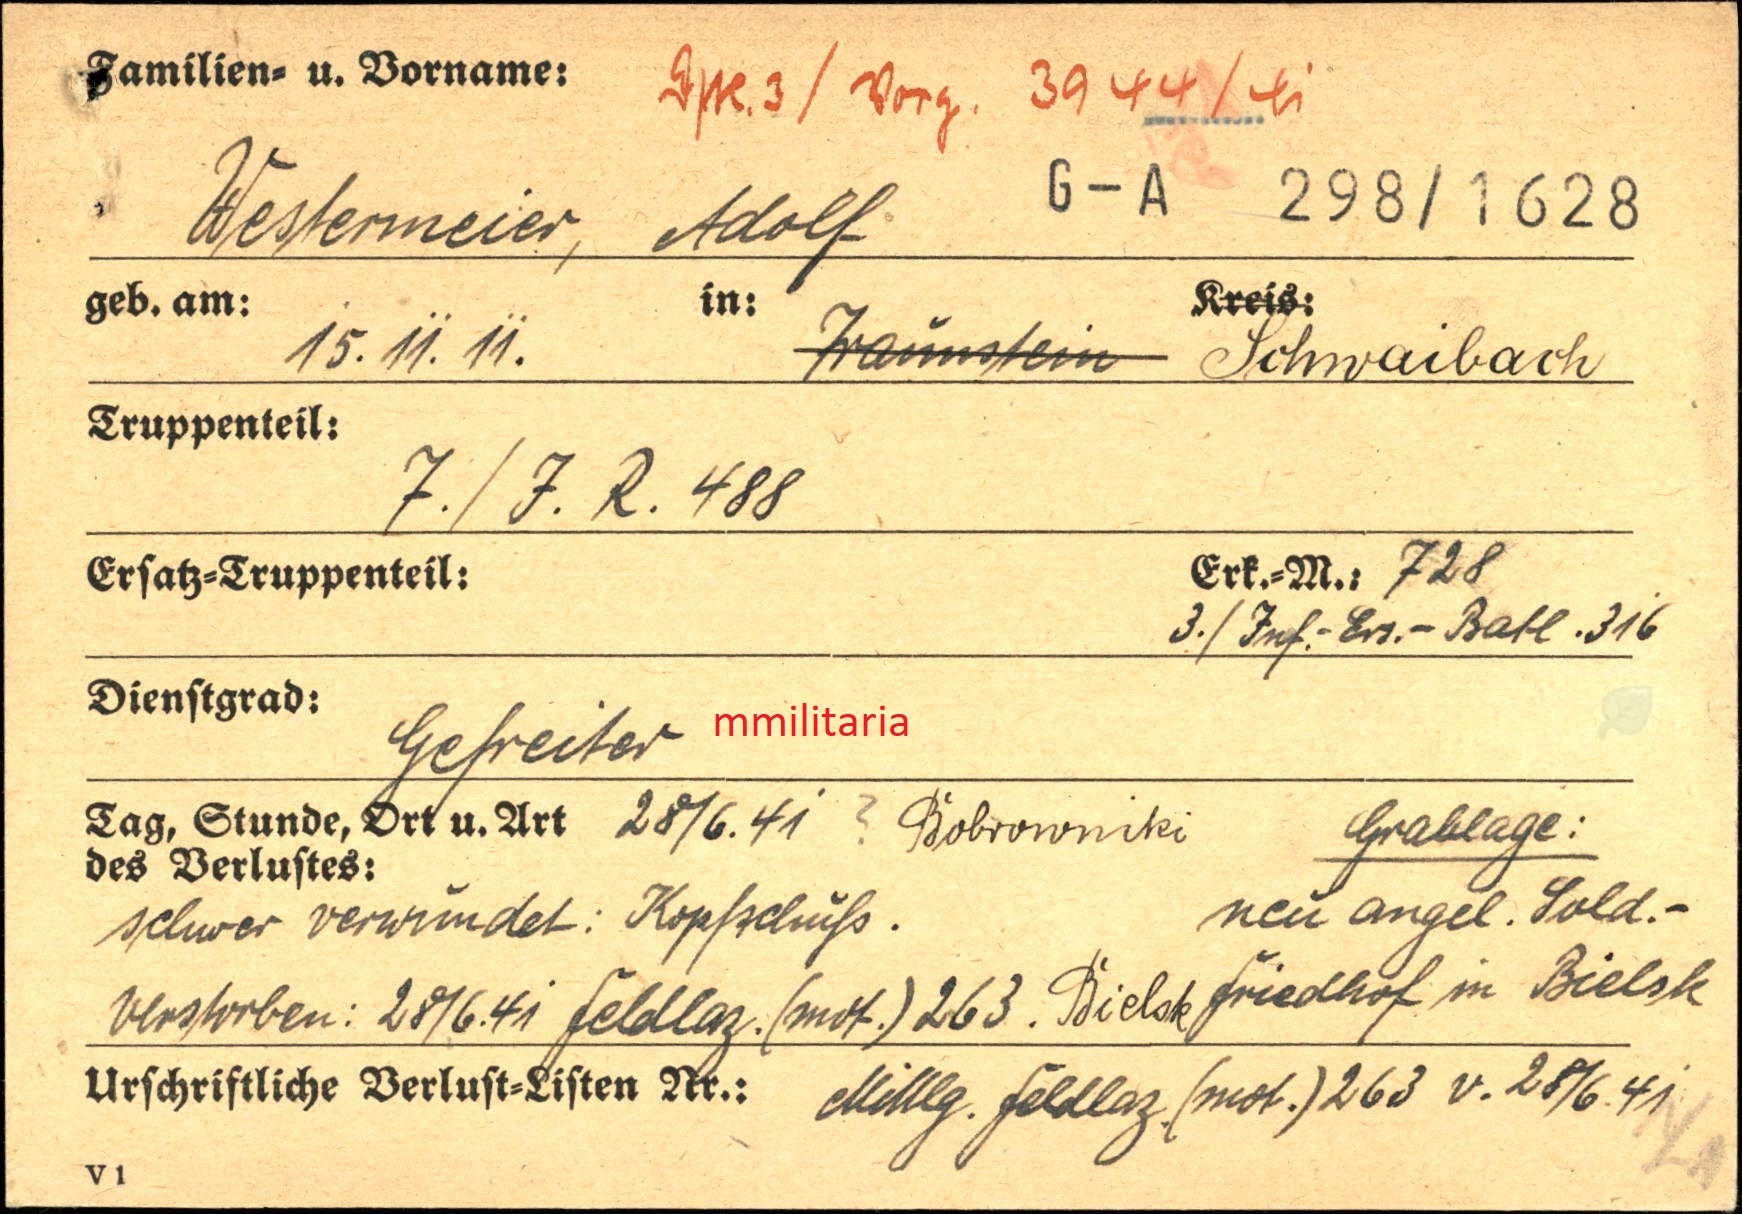 Familien- u. Vorname:
3 / Vorg. 3944 /
G-A 298/1628
Westermeier, Adolf
geb. am: 15. 11. 11. in: Traunstein Kreis: Schwaibach
Truppenteil:
7. / J. R. 488
Ersatz-Truppenteil: Erk.-M.: 728
3. / Inf.-Ers.-Batl. 316
Dienstgrad:
Gefreiter mmilitaria
Tag, Stunde, Ort u. Art 28/6. 41 ? Bobrowniki Grablage:
des Verlustes:
schwer verwundet: Kopfschuß. neu angel. Sold.-
Verstorben: 28/6. 41 Feldlaz. (mot.) 263. Bielsk Friedhof in Bielsk
Urschriftliche Verlust-Listen Nr.: Mittlg. Feldlaz. (mot.) 263 v. 28/6. 41
V 1